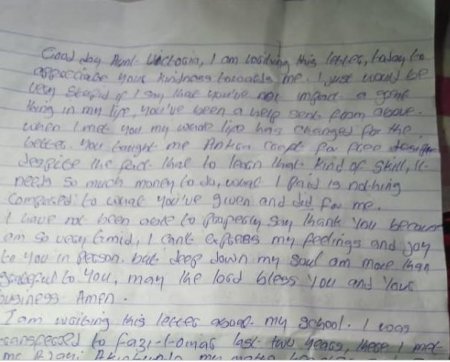 Good day Aunt Victoria, I am writing this letter, today to
appreciate your kindness towards me. I just would be
very stupid if I say that you've not impact a good
thing in my life, you've been a help sent from above.
when I met you my whole life has changed for the
better, you taught me for free
despite the fact that to learn that kind of skill, it
needs so much money to do, what I paid is nothing
compared to what you've given and did for me.
I have not been able to properly say thank you because
am so very timid, I cant express my feelings and joy
to you in person. but deep down my soul am more than
grateful to you, may the lord bless you and your
business Amen.
I am writing this letter about my school. I was
to last two years, there I met
me my